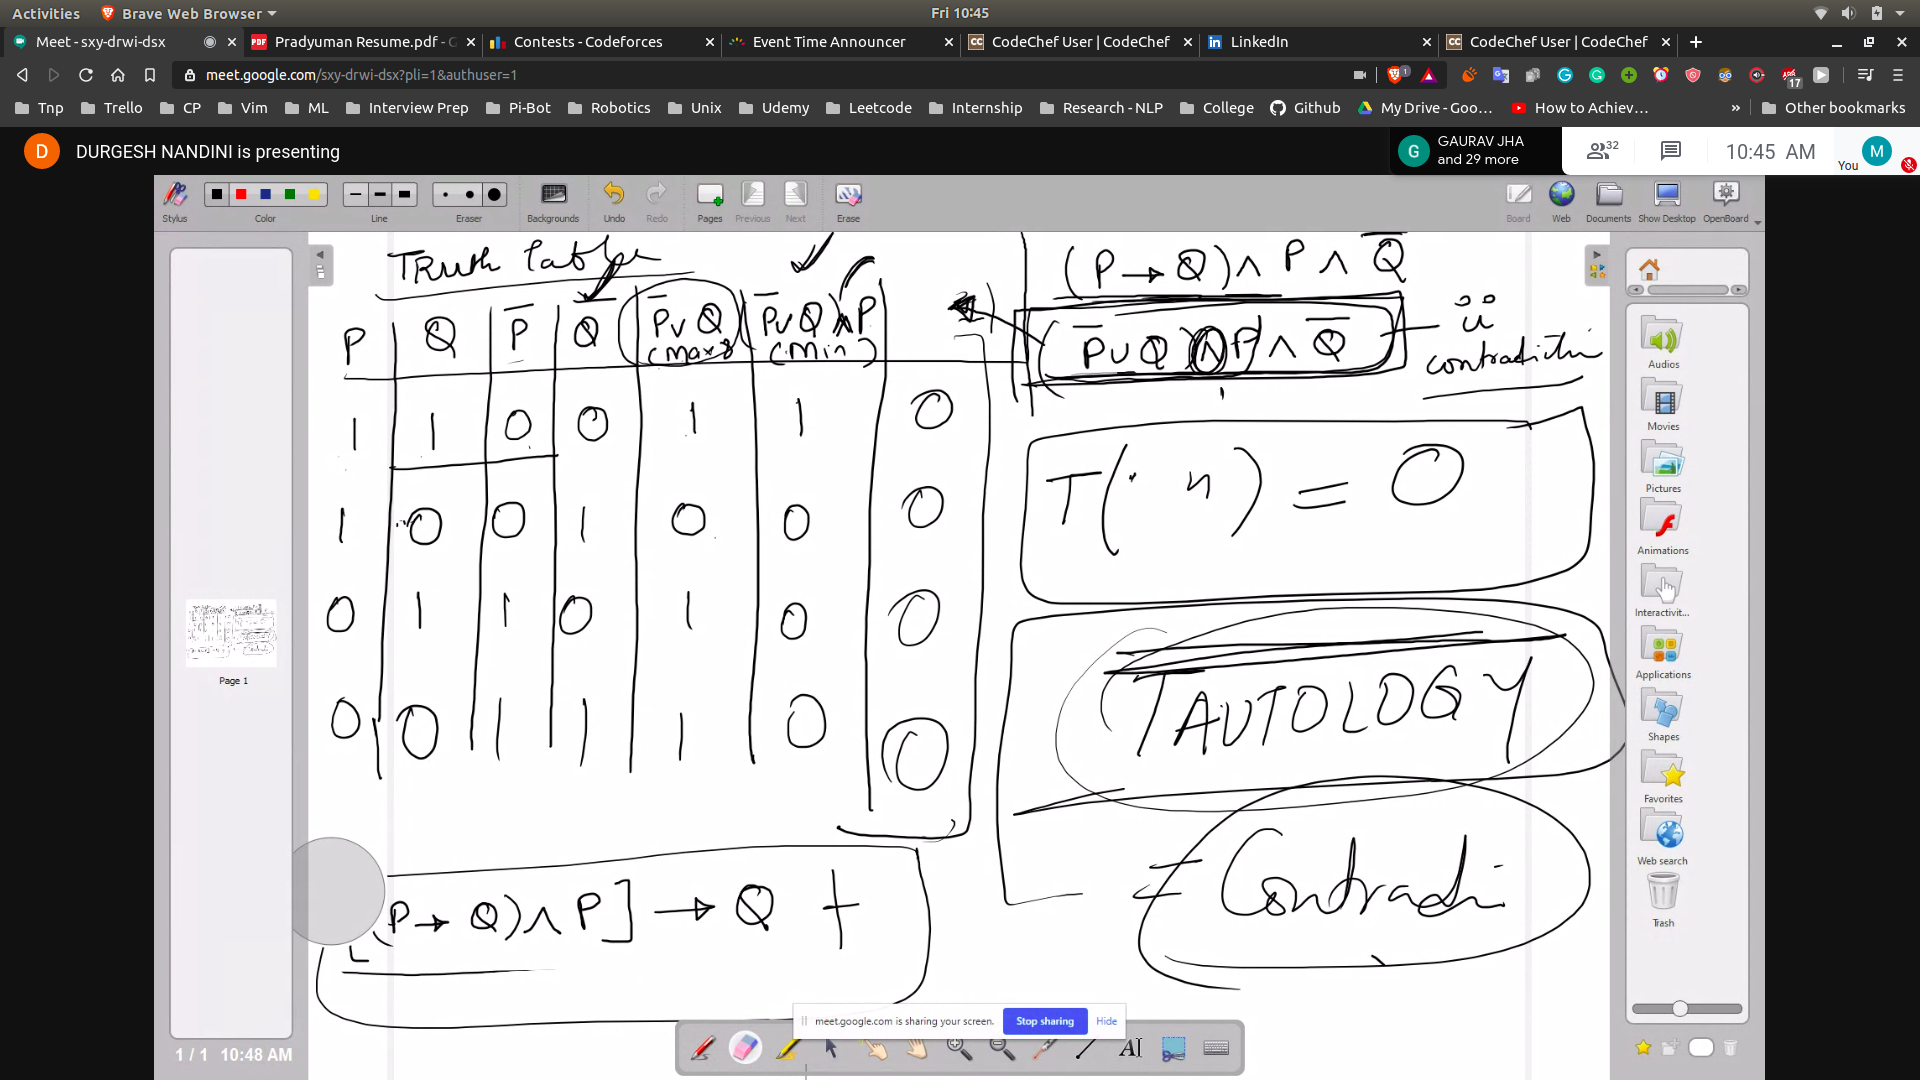 Activities Brave Web Browser Fri 10:45
Meet - sxy-drwi-dsx Pradyuman Resume.pdf - G Contests - Codeforces Event Time Announcer CodeChef User | CodeChef LinkedIn CodeChef User | CodeChef
meet.google.com/sxy-drwi-dsx?pli=1&authuser=1
Tnp Trello CP Vim ML Interview Prep Pi-Bot Robotics Unix Udemy Leetcode Internship Research - NLP College Github My Drive - Goo... How to Achiev... » Other bookmarks
D DURGESH NANDINI is presenting
G GAURAV JHA and 29 more
32 10:45 AM You M
Stylus Color Line Eraser Backgrounds Undo Redo Pages Previous Next Erase Board Web Documents Show Desktop OpenBoard
Truth Table
P Q P̅ Q̅ P̅∨Q (max) (P̅∨Q)∧P (min)
1 1 0 0 1 1 0
1 0 0 1 0 0 0
0 1 1 0 1 0 0
0 0 1 1 1 0 0
[(P→Q)∧P]→Q
(P→Q)∧P∧Q̅
(P̅∨Q)∧P∧Q̅
contradiction
T( n) = 0
TAUTOLOGY
Contradi
Page 1
1 / 1 10:48 AM
Audios
Movies
Pictures
Animations
Interactivit...
Applications
Shapes
Favorites
Web search
Trash
meet.google.com is sharing your screen. Stop sharing Hide